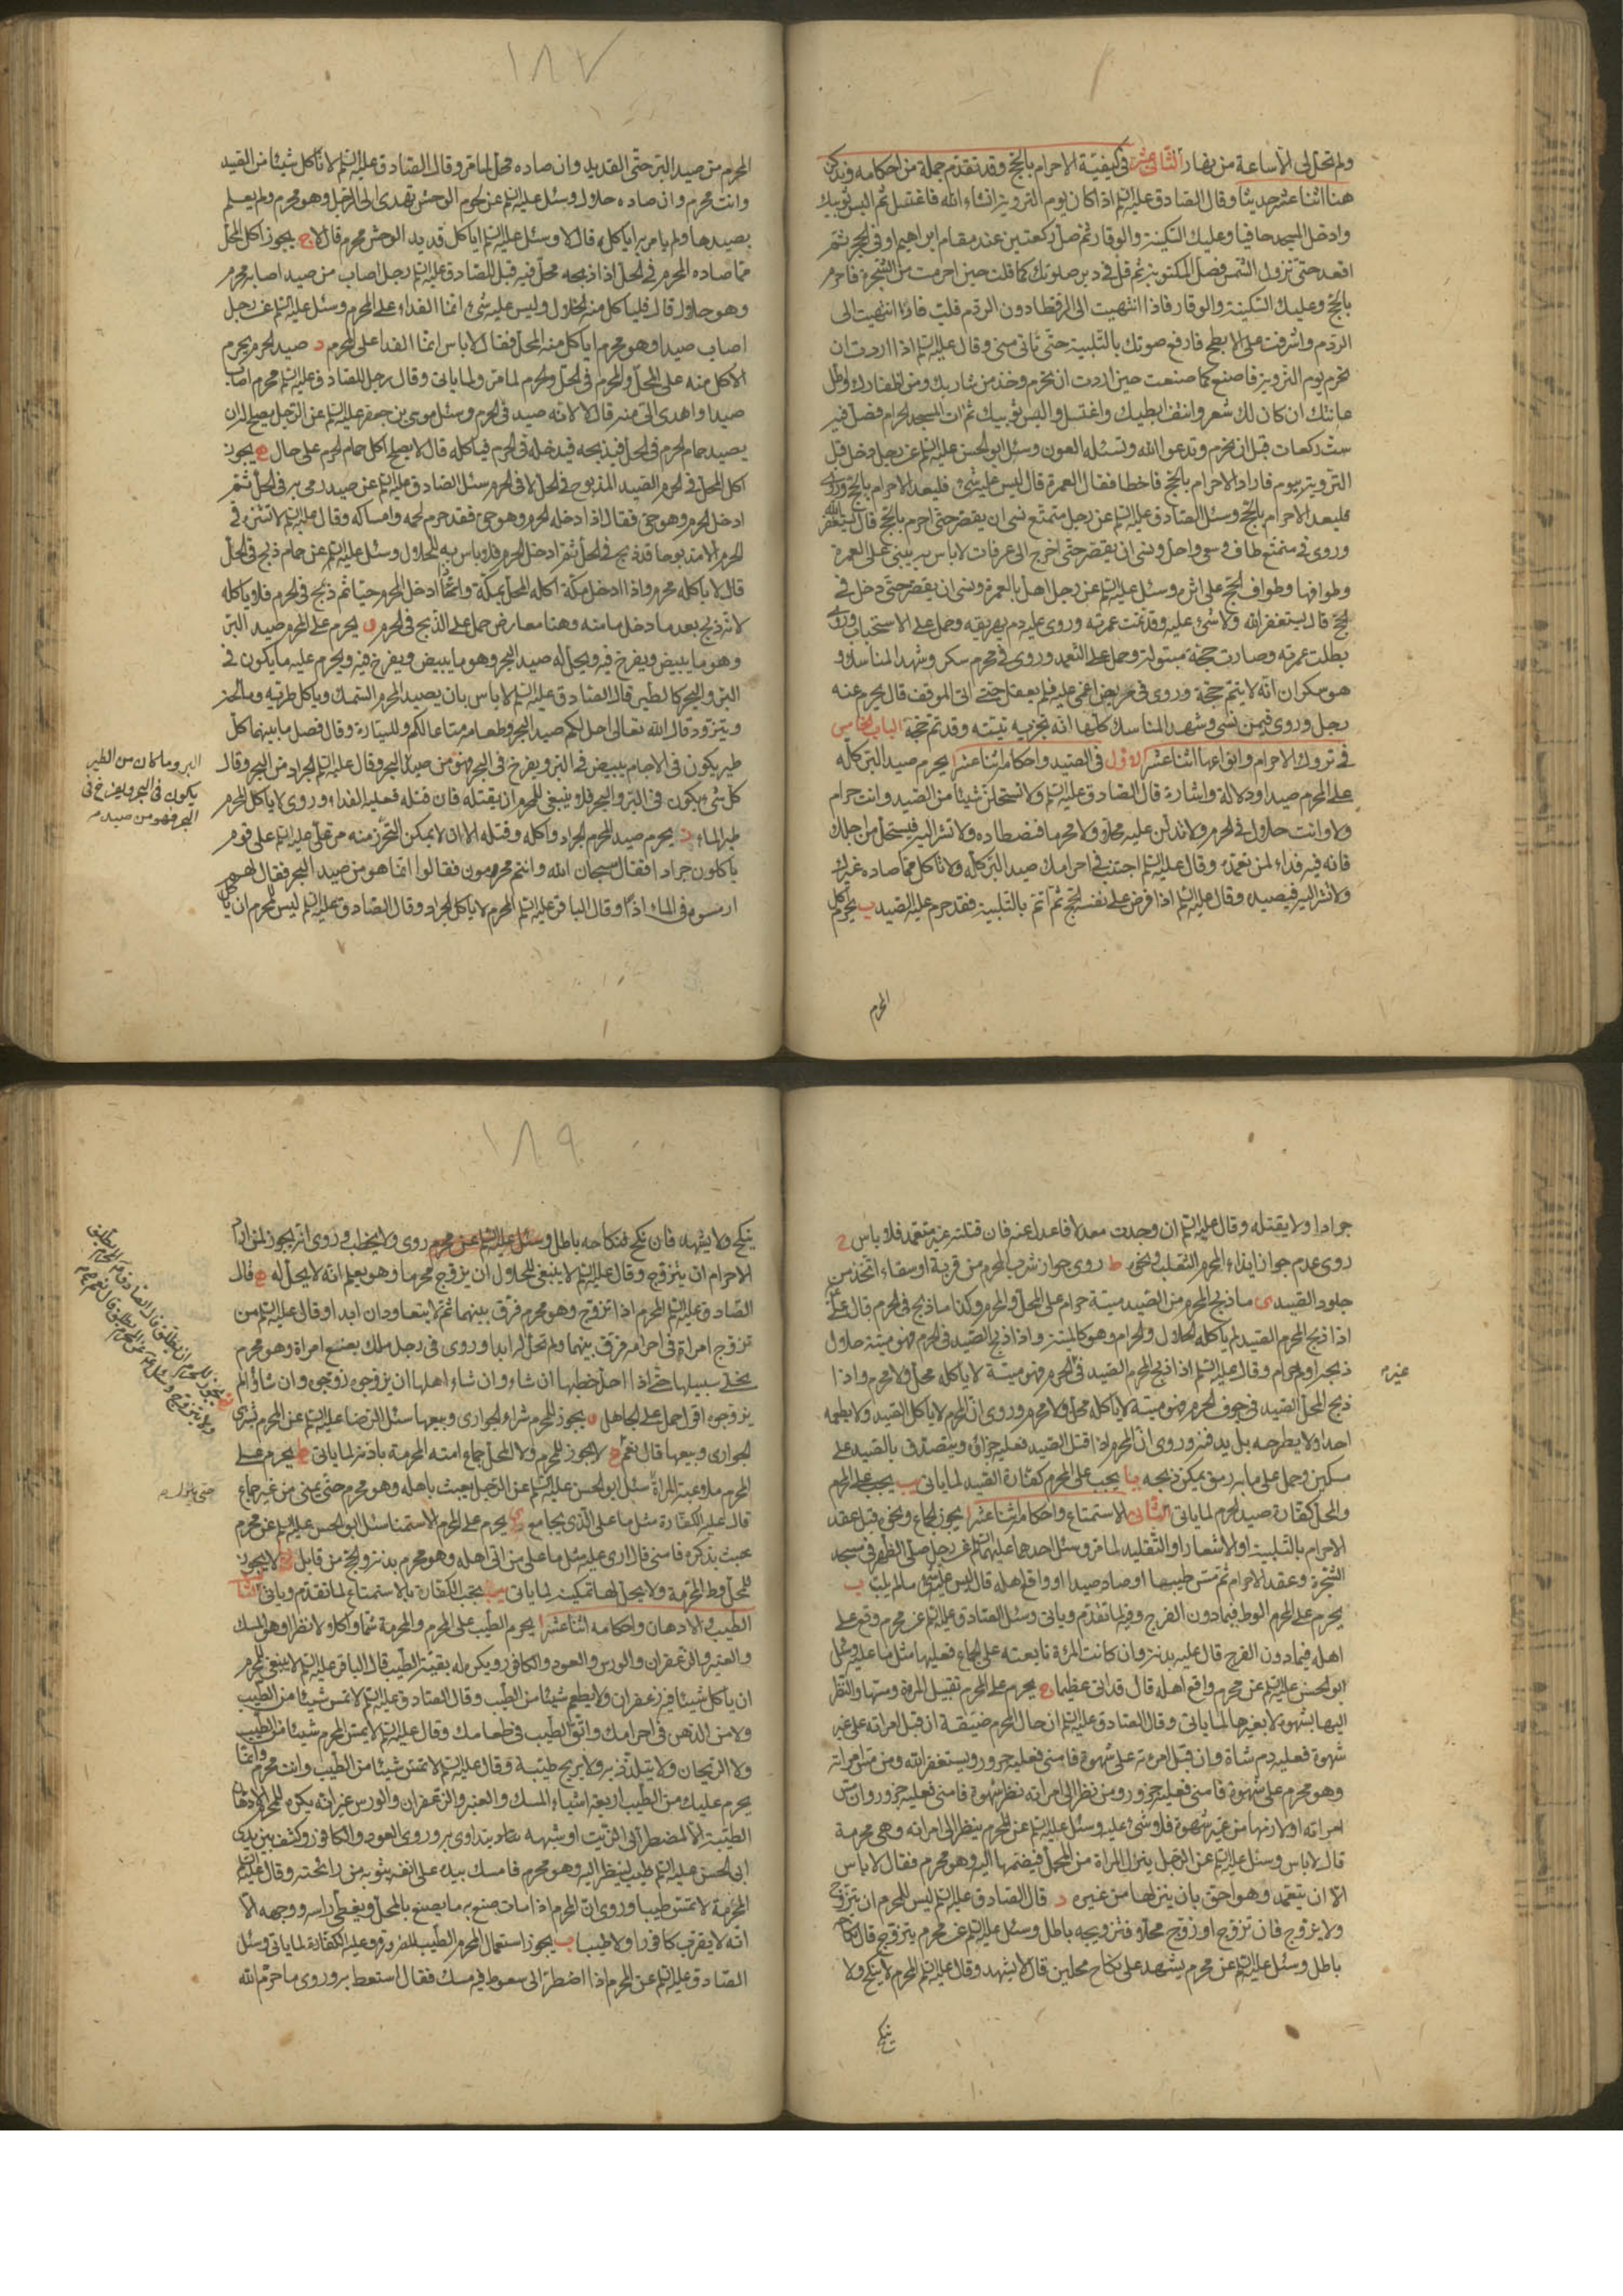 ١٨٧
ولم تحل لى الا ساعة من نهار الثانى عشر فى كيفيّة الاحرام بالحجّ وقد تقدّم جملة من احكامه ونذكر
هنا اثنا عشر حديثا وقال الصّادق عليه السّلم اذا كان يوم التروية انشاء الله فاغتسل ثم البس ثوبيك
وادخل المسجد حافيا وعليك السّكينة والوقار ثم صلّ ركعتين عند مقام ابراهيم او فى الحجر ثمّ
اقعد حتى تزول الشّمس فصلّ المكتوبة ثم قل فى دبر صلوتك كما قلت حين احرمت من الشّجرة فاحرم
بالحجّ وعليك السّكينة والوقار فاذا انتهيت الى الرقطا دون الردم فلبّ فاذا انتهيت الى
الردم واشرفت على الابطح فارفع صوتك بالتّلبية حتّى تاتى منى وقال عليه السّلم اذا اردت ان
تحرم يوم التروية فاصنع كما صنعت حين اردت ان تحرم وخذ من شاربك ومن اظفارك واطل
عانتك ان كان لك شعر وانتف ابطيك واغتسل والبس ثوبيك ثم ات المسجد الحرام فصلّ فيه
ستّ ركعات قبل ان تحرم وتدعو الله وتسئله العون وسئل ابو الحسن عليه السّلم عن رجل دخل قبل
التّروية بيوم فاراد الاحرام بالحجّ فاخطا فقال العمرة قال ليس عليه شئ فليعد الاحرام بالحجّ وروى
فليعد الاحرام بالحجّ وسئل الصّادق عليه السّلم عن رجل متمتّع نسى ان يقصّر حتّى احرم بالحجّ قال يستغفر الله
وروى فى متمتّع طاف وسعى واحل ونسى ان يقصّر حتّى اخرج الى عرفات لا باس به يبنى على العمرة
وطوافها وطواف الحجّ على اثره وسئل عليه السّلم عن رجل اهل بالعمرة ونسى ان يقصّر حتّى دخل فى
الحجّ قال يستغفر الله ولا شئ عليه وقد تمّت عمرته وروى عليه دم يهريقه وحمل على الاستحباب وروى
بطلت عمرته وصارت حجّته مبتولة وحمل على التعمد وروى فى محرم سكر وشهد المناسك و
هو سكران انّه لا يتمّ حجّه وروى فى مريض اغمى عليه فلم يعقل حتّى اتى الموقف قال يحرم عنه
رجل وروى فيمن نسى وشهد المناسك كلّها انه تجزيه نيّته وقد تم حجّه الباب الخامس
فى تروك الاحرام وانواعها اثنا عشر الاوّل فى الصّيد واحكامه اثنا عشر ا يحرم صيد البرّ كلّه
على المحرم صيدا ودلالة واشارة قال الصّادق عليه السّلم ولا تستحلنّ شيئا من الصّيد وانت حرام
ولا وانت حلال فى الحرم ولا تدلّن عليه محلّا ولا محرما فيصطاده ولا تشر اليه فيستحل من اجلك
فانه فيه فداء لمن تعمّده وقال عليه السّلم اجتنب فى احرامك صيد البرّ كلّه ولا تاكل ممّا صاده غيرك
ولا تشر اليه فيصيده وقال عليه السّلم اذا فرض على نفسه الحجّ ثم اتمّ بالتّلبية فقد حرم عليه الصّيد ب يحرم اكل
المحرم
المحرم من صيد البرّ حتّى القديد وان صاده محل لما مرّ وقال الصّادق عليه السّلم لا تاكل شيئا من الصّيد
وانت محرم وان صاده حلال وسئل عليه السّلم عن لحوم الوحش تهدى الى الرّجل وهو محرم ولم يعلم
بصيدها ولم يامر به اياكله قال لا وسئل عليه السّلم اياكل قديد الوحش محرم قال لا ج يجوز اكل المحلّ
ممّا صاده المحرم فى الحلّ اذا ذبحه محلّ فيه قيل للصّادق عليه السّلم رجل اصاب من صيد اصابه محرم
وهو حلال قال فلياكل منه الحلال وليس عليه شئ انما الفداء على المحرم وسئل عليه السّلم عن رجل
اصاب صيدا وهو محرم اياكل منه المحلّ فقال لا باس انمّا الفدا على المحرم د صيد الحرم يحرم
الاكل منه على المحلّ والمحرم فى الحلّ والحرم لما مرّ ولما ياتى وقال رجل للصّادق عليه السّلم محرم اصاب
صيدا واهدى الىّ منه قال لا لانه صيد فى الحرم وسئل موسى بن جعفر عليه السّلم عن الرّجل يصلح له ان
يصيد حمام الحرم فى الحل فيذبحه فيدخله فى الحرم فياكله قال لا يصلح اكل حمام الحرم على حال ه يجوز
اكل المحلّ فى الحرم الصّيد المذبوح فى الحلّ لا فى الحرم سئل الصّادق عليه السّلم عن صيد رمى به فى الحلّ ثمّ
ادخل الحرم وهو حىّ فقال اذا ادخله الحرم وهو حىّ فقد حرم لحمه وامساكه وقال عليه السّلم لا تشتر فى
الحرم الا مذبوحا قد ذبح فى الحلّ ثمّ ادخل الحرم فلا باس به للحلال وسئل عليه السّلم عن حمام ذبح فى الحلّ
قال لا ياكله محرم واذا ادخل مكّة اكله المحل بمكّة واذا ادخل الحرم حيّا ثم ذبح فى الحرم فلا ياكله
لانّه ذبح بعد ما دخل مامنه وهنا معارض حمل على الذّبح فى الحرم و يحرم على المحرم صيد البرّ
وهو ما يبيض ويفرخ فيه ويحلّ له صيد البحر وهو ما يبيض ويفرخ فيه ويحرم عليه ما يكون فى
البرّ والبحر كالطير قال الصّادق عليه السّلم لا باس بان يصيد المحرم السّمك وياكل طريّه ومالحه
ويتزوّد قال الله تعالى احل لكم صيد البحر وطعامه متاعا لكم وللسيّارة وقال فصل ما بينهما كلّ
طير يكون فى الاجام يبيض فى البرّ ويفرخ فى البحر فهو من صيد البحر وقال عليه السّلم الجراد من البحر وقال
كلّ شئ يكون فى البرّ والبحر فلا ينبغى للمحرم ان يقتله فان قتله فعليه الفداء وروى لا ياكل المحرم
طير الماء ز يحرم صيد المحرم الجراد واكله وقتله الا ان لا يمكن التحرّز منه مرّ علىّ عليه السّلم على قوم
ياكلون جرادا فقال سبحان الله وانتم محرمون فقالوا انما هو من صيد البحر فقال لهم
ارمسوه فى الماء اذًا وقال الباقر عليه السّلم المحرم لا ياكل الجراد وقال الصّادق عليه السّلم ليس للمحرم ان ياكل
البر وما كان من الطير
يكون فى البر ويفرخ فى
البحر فهو من صيد
١٨٩
جرادا ولا يقتله وقال عليه السّلم ان وجدت معدلا فاعدل عنه فان قتلته غير متعمد فلا باس ح
روى عدم جواز ايذاء المحرم الثعلب ونحوه ط روى جواز شرب المحرم من قربة او سقاء اتّخذ من
جلود الصّيد ى ما ذبح المحرم من الصيد ميتة حرام على المحلّ والمحرم وكذا ما ذبح فى الحرم قال علىّ
اذا ذبح المحرم الصّيد لم ياكله الحلال والحرام وهو كالميتة واذا ذبح الصّيد فى الحرم فهو ميتة حلال
ذبحه او حرام وقال عليه السّلم اذا ذبح المحرم الصّيد فى الحرم فهو ميتة لا ياكله محلّ ولا محرم واذا
ذبح المحلّ الصّيد فى جوف الحرم فهو ميتة لا ياكله محلّ ولا محرم وروى انّ المحرم لا ياكل الصّيد ولا يطعمه
احدا ولا يطرحه بل يدفنه وروى انّ المحرم اذا قتل الصّيد فعليه جزاؤه ويتصدّق بالصّيد على
مسكين وحمل على ما به رمق يمكن ذبحه يا يجب على المحرم كفّارة الصّيد لما ياتى يب يجب على المحرم
والمحلّ كفّارة صيد الحرم لما ياتى الثّانى الاستمتاع واحكامه اثنا عشر ا يجوز الجماع ونحوه قبل عقد
الاحرام بالتّلبية او الاشعار او التّقليد لما مرّ وسئل احدهما عليهما السّلم عن رجل صلّى الظّهر فى مسجد
الشّجرة وعقد الاحرام ثم مسّ طيبا او صاد صيدا او واقع اهله قال ليس عليه شئ ما لم يلبّ ب
يحرم على المحرم الوطى فيما دون الفرج وفيه لما تقدّم وياتى وسئل الصّادق عليه السّلم عن محرم وقع على
اهله فيما دون الفرج قال عليه بدنة وان كانت المرئة تابعته على الجماع فعليها مثل ما عليه وسئل
ابو الحسن عليه السّلم عن محرم واقع اهله قال قد اتى عظيما ج يحرم على المحرم تقبيل المراة ومسّها والنّظر
اليها بشهوة لا بغيرها لما ياتى وقال الصّادق عليه السّلم ان حال المحرم ضيّقة ان قبّل امراته على غير
شهوة فعليه دم شاة وان قبّل امرته على شهوة فامنى فعليه جزور ويستغفر الله ومن مسّ امراته
وهو محرم على شهوة فامنى فعليه جزور ومن نظر الى امراته نظر شهوة فامنى فعليه جزور وان مسّ
امراته او لازمها من غير شهوة فلا شئ عليه وسئل عليه السّلم عن المحرم ينظر الى امراته وهى محرمة
قال لا باس وسئل عليه السّلم عن الرّجل ينزل المراة من المحمل فيضمّها اليه وهو محرم فقال لا باس
الّا ان يتعمّد وهو احق بان ينزلها من غيره د قال الصّادق عليه السّلم ليس للمحرم ان يتزوّج
ولا يزوج فان تزوّج او زوّج محلّا فتزويجه باطل وسئل عليه السّلم عن محرم يتزوّج قال نكاحه
باطل وسئل عليه السّلم عن محرم يشهد على نكاح محلين قال لا يشهد وقال عليه السّلم المحرم لا ينكح ولا
ينكح
ينكح ولا يشهد فان نكح فنكاحه باطل وسئل عليه السّلم عن محرم روى ولا يخطب وروى انّه يجوز لمن اراد
الاحرام ان يتزوّج وقال عليه السّلم لا ينبغى للحلال ان يزوّج محرما وهو يعلم انه لا يحلّ له ه قال
الصّادق عليه السّلم المحرم اذا تزوّج وهو محرم فرّق بينهما ثم لا يتعاودان ابدا وقال عليه السّلم من
تزوّج امراة فى احرامه فرّق بينهما ولم تحلّ له ابدا وروى فى رجل ملك بضع امراة وهو محرم
يخلّى سبيلها حتّى اذا احلّ خطبها ان شاء وان شاء اهلها ان يزوّجوه زوّجوه وان شاؤا لم
يزوّجوه اقول حمل على الجاهل و يجوز للمحرم شراء الجوارى وبيعها سئل الرّضا عليه السّلم عن المحرم يشترى
الجوارى وبيعها قال نعم لا يجوز للمحرم ولا المحلّ جماع امته المحرمة باذنه لما ياتى ح يحرم على
المحرم ملاعبة المراة سئل ابو الحسن عليه السّلم عن الرّجل يعبث باهله وهو محرم حتّى يمنى من غير جماع
قال عليه الكفّارة مثل ما على الّذى يجامع ى يحرم على المحرم الاستمنا سئل ابو الحسن عليه السّلم عن محرم
عبث بذكره فامنى قال ارى عليه مثل ما على من اتى اهله وهو محرم بدنة والحجّ من قابل لا يجوز
للمحلّ وطى المحرمة ولا يحلّ لها تمكينه لما ياتى يب يجب الكفّارة بالاستمتاع لما تقدّم وياتى الثّالث
الطّيب والادهان واحكامه اثنا عشر ا يحرم الطّيب على المحرم والمحرمة شمّا واكلا لا نظرا وهو المسك
والعنبر والزّعفران والورس والعود والكافور ويكره له بقيّة الطّيب قال الباقر عليه السّلم لا ينبغى للمحرم
ان ياكل شيئا فيه زعفران ولا يطعم شيئا من الطّيب وقال الصّادق عليه السّلم لا تمسّ شيئا من الطّيب
ولا من الدّهن فى احرامك واتّق الطّيب فى طعامك وقال عليه السّلم لا يمسّ المحرم شيئا من الطّيب
ولا الرّيحان ولا يتلذّذ به ولا بريح طيّبة وقال عليه السّلم لا تمسّ شيئا من الطّيب وانت محرم وانّما
يحرم عليك من الطّيب اربعة اشياء المسك والعنبر والزّعفران والورس غير انّه يكره للمحرم الادهان
الطيّبة الّا المضطرّ الى الزّيت او شبهه يتداوى به وروى العود والكافور وكشف بين يدى
ابى الحسن عليه السّلم طيب لينظر اليه وهو محرم فامسك بيده على انفه بثوبه من رائحته وقال عليه السّلم
المحرمة لا تمسّ طيبا وروى انّ المحرم اذا مات صنع به ما يصنع بالمحلّ ويغطّى راسه ووجهه الّا
انّه لا يقرب كافورا ولا طيبا ب يجوز استعمال المحرم الطّيب للضرورة وعليه الكفّارة لما ياتى وسئل
الصّادق عليه السّلم عن المحرم اذا اضطرّ الى سعوط فيه مسك فقال استعط به وروى ما حرّم الله